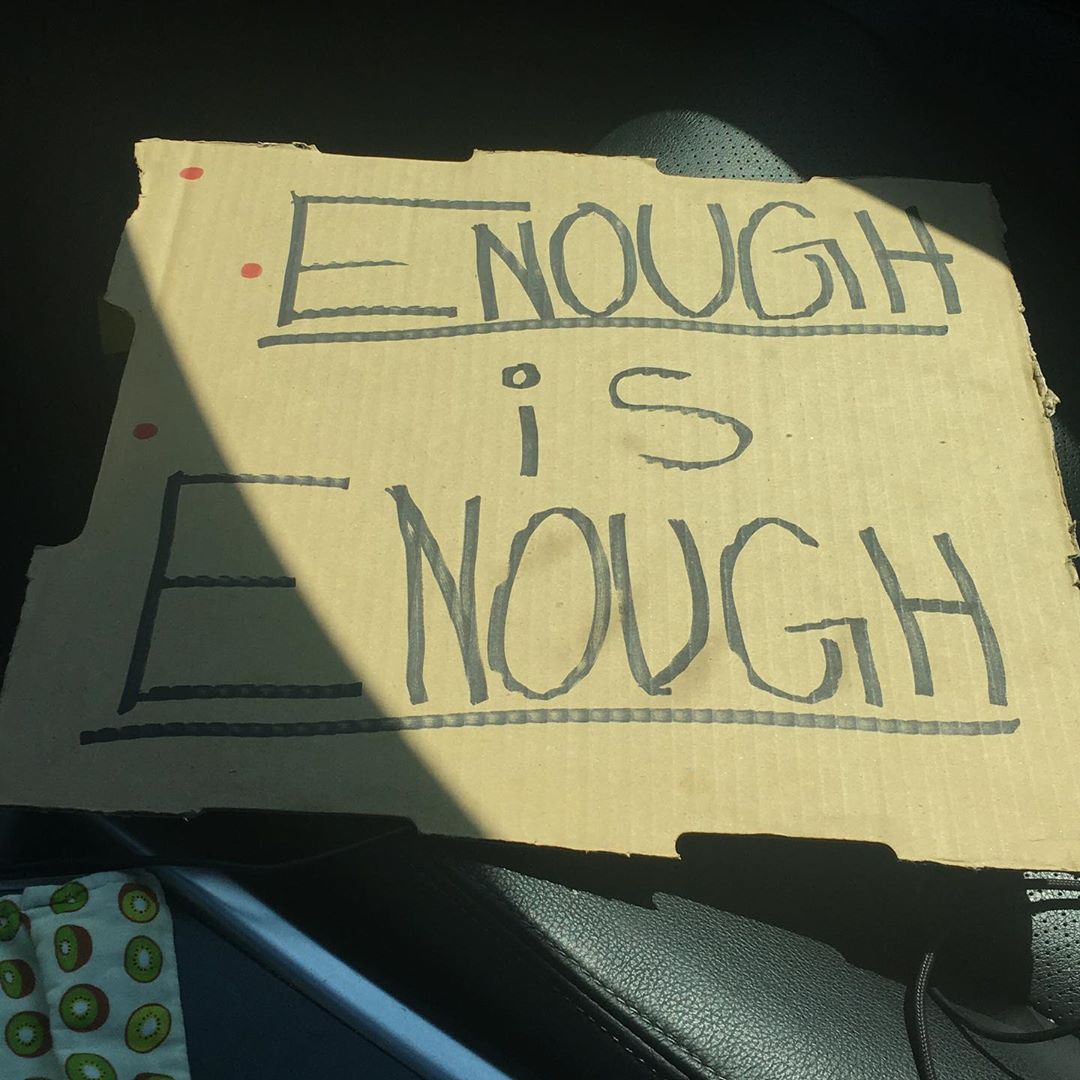 ENOUGH
is
ENOUGH